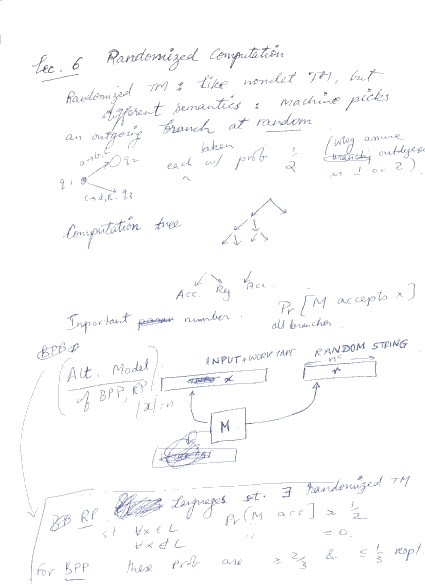 Lec. 6 Randomized Computation
Randomized TM : Like nondet TM, but
different semantics : machine picks
an outgoing branch at random
taken
each w/ prob 1/2 (Wlog assume
branching outdegree
is 1 or 2).
q1 q2
q3
Computation tree
Acc. Rej Acc.
Important number. Pr [M accepts x]
all branches
(Alt. Model
of BPP, RP)
|x|=n
INPUT+WORK TAPE RANDOM STRING
x r
M
RP languages st. ∃ randomized TM
∀x ∈ L Pr[M acc] ≥ 1/2
∀x ∉ L " = 0.
For BPP these prob are ≥ 2/3 & ≤ 1/3 resp.